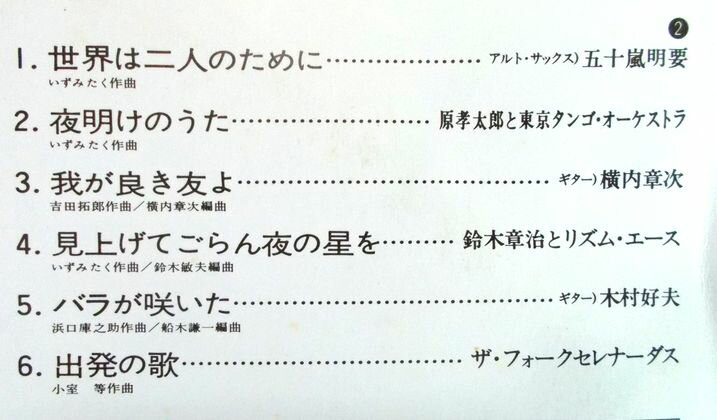 2
1. 世界は二人のために…………………アルト・サックス)五十嵐明要
いずみたく作曲
2. 夜明けのうた…………………………原孝太郎と東京タンゴ・オーケストラ
いずみたく作曲
3. 我が良き友よ…………………………………………ギター)横内章次
吉田拓郎作曲／横内章次編曲
4. 見上げてごらん夜の星を………鈴木章治とリズム・エース
いずみたく作曲／鈴木敏夫編曲
5. バラが咲いた…………………………………………ギター)木村好夫
浜口庫之助作曲／船木謙一編曲
6. 出発の歌……………………………………ザ・フォークセレナーダス
小室　等作曲